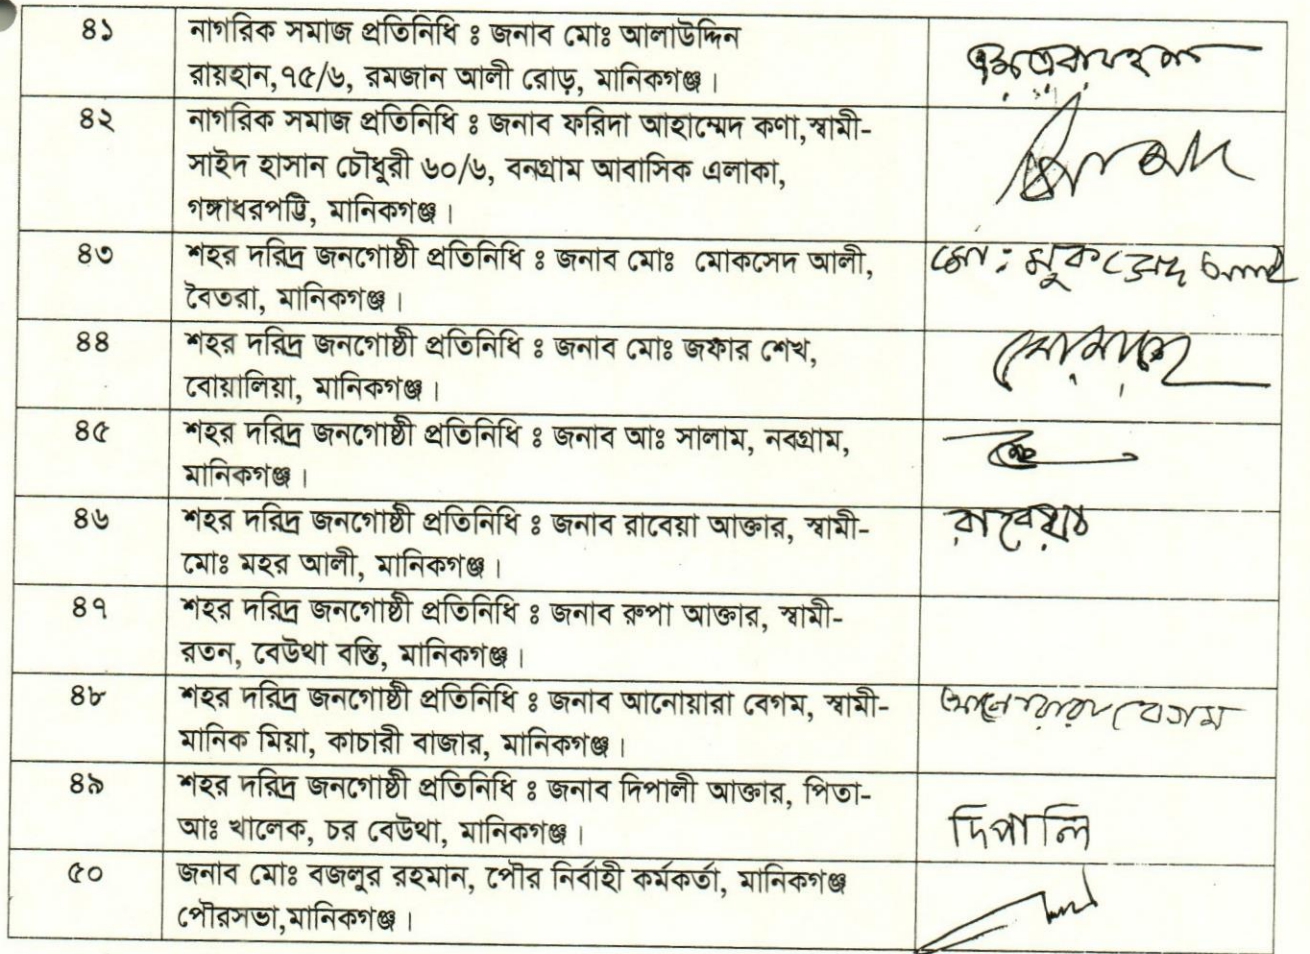 ৪১
নাগরিক সমাজ প্রতিনিধি ঃ জনাব মোঃ আলাউদ্দিন
রায়হান,৭৫/৬, রমজান আলী রোড়, মানিকগঞ্জ।
৪২
নাগরিক সমাজ প্রতিনিধি ঃ জনাব ফরিদা আহাম্মেদ কণা,স্বামী-
সাইদ হাসান চৌধুরী ৬০/৬, বনগ্রাম আবাসিক এলাকা,
গঙ্গাধরপট্টি, মানিকগঞ্জ।
৪৩
শহর দরিদ্র জনগোষ্ঠী প্রতিনিধি ঃ জনাব মোঃ মোকসেদ আলী,
বৈতরা, মানিকগঞ্জ।
মো: মুকসেদ
৪৪
শহর দরিদ্র জনগোষ্ঠী প্রতিনিধি ঃ জনাব মোঃ জফার শেখ,
বোয়ালিয়া, মানিকগঞ্জ।
৪৫
শহর দরিদ্র জনগোষ্ঠী প্রতিনিধি ঃ জনাব আঃ সালাম, নবগ্রাম,
মানিকগঞ্জ।
৪৬
শহর দরিদ্র জনগোষ্ঠী প্রতিনিধি ঃ জনাব রাবেয়া আক্তার, স্বামী-
মোঃ মহর আলী, মানিকগঞ্জ।
রাবেয়া
৪৭
শহর দরিদ্র জনগোষ্ঠী প্রতিনিধি ঃ জনাব রুপা আক্তার, স্বামী-
রতন, বেউথা বস্তি, মানিকগঞ্জ।
৪৮
শহর দরিদ্র জনগোষ্ঠী প্রতিনিধি ঃ জনাব আনোয়ারা বেগম, স্বামী-
মানিক মিয়া, কাচারী বাজার, মানিকগঞ্জ।
আনোয়ারা বেগম
৪৯
শহর দরিদ্র জনগোষ্ঠী প্রতিনিধি ঃ জনাব দিপালী আক্তার, পিতা-
আঃ খালেক, চর বেউথা, মানিকগঞ্জ।
দিপালি
৫০
জনাব মোঃ বজলুর রহমান, পৌর নির্বাহী কর্মকর্তা, মানিকগঞ্জ
পৌরসভা,মানিকগঞ্জ।